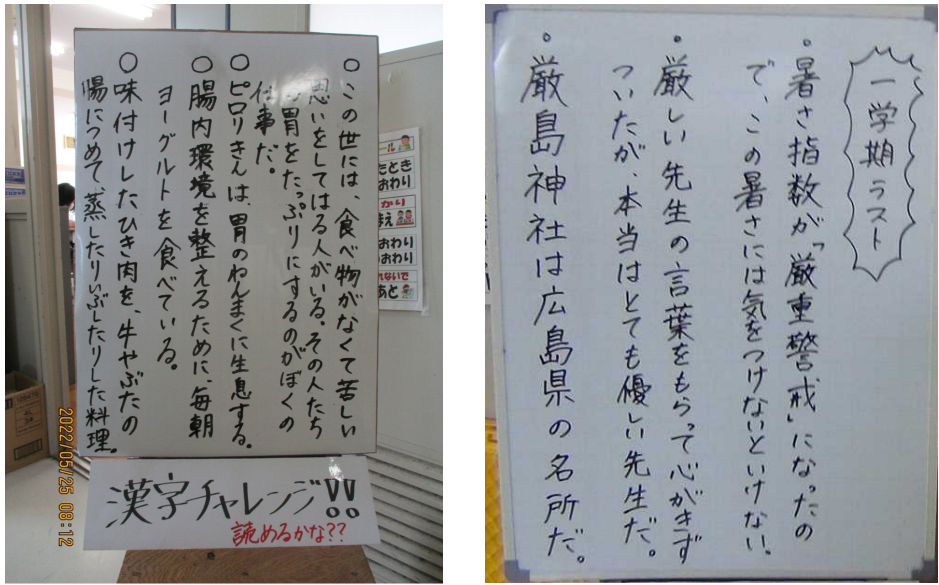 ○この世には、食べ物がなくて苦しい
思いをしてはる人がいる。その人たち
の胃をたっぷりにするのがぼくの
仕事だ。
○ピロリきんは、胃のねんまくに生息する。
○腸内環境を整えるために、毎朝
ヨーグルトを食べている。
○味付けしたひき肉を、牛やぶたの
腸につめて、蒸したりいぶしたりした料理。
漢字チャレンジ!!
読めるかな??
2022/05/25 08:12
たとき
おわり
かり
まえ
おわり
おわり
れないで
あと
一学期ラスト
・暑さ指数が「厳重警戒」になったの
で、この暑さには気をつけないといけない。
・厳しい先生の言葉をもらって心がきず
ついたが、本当はとても優しい先生だ。
・厳島神社は広島県の名所だ。